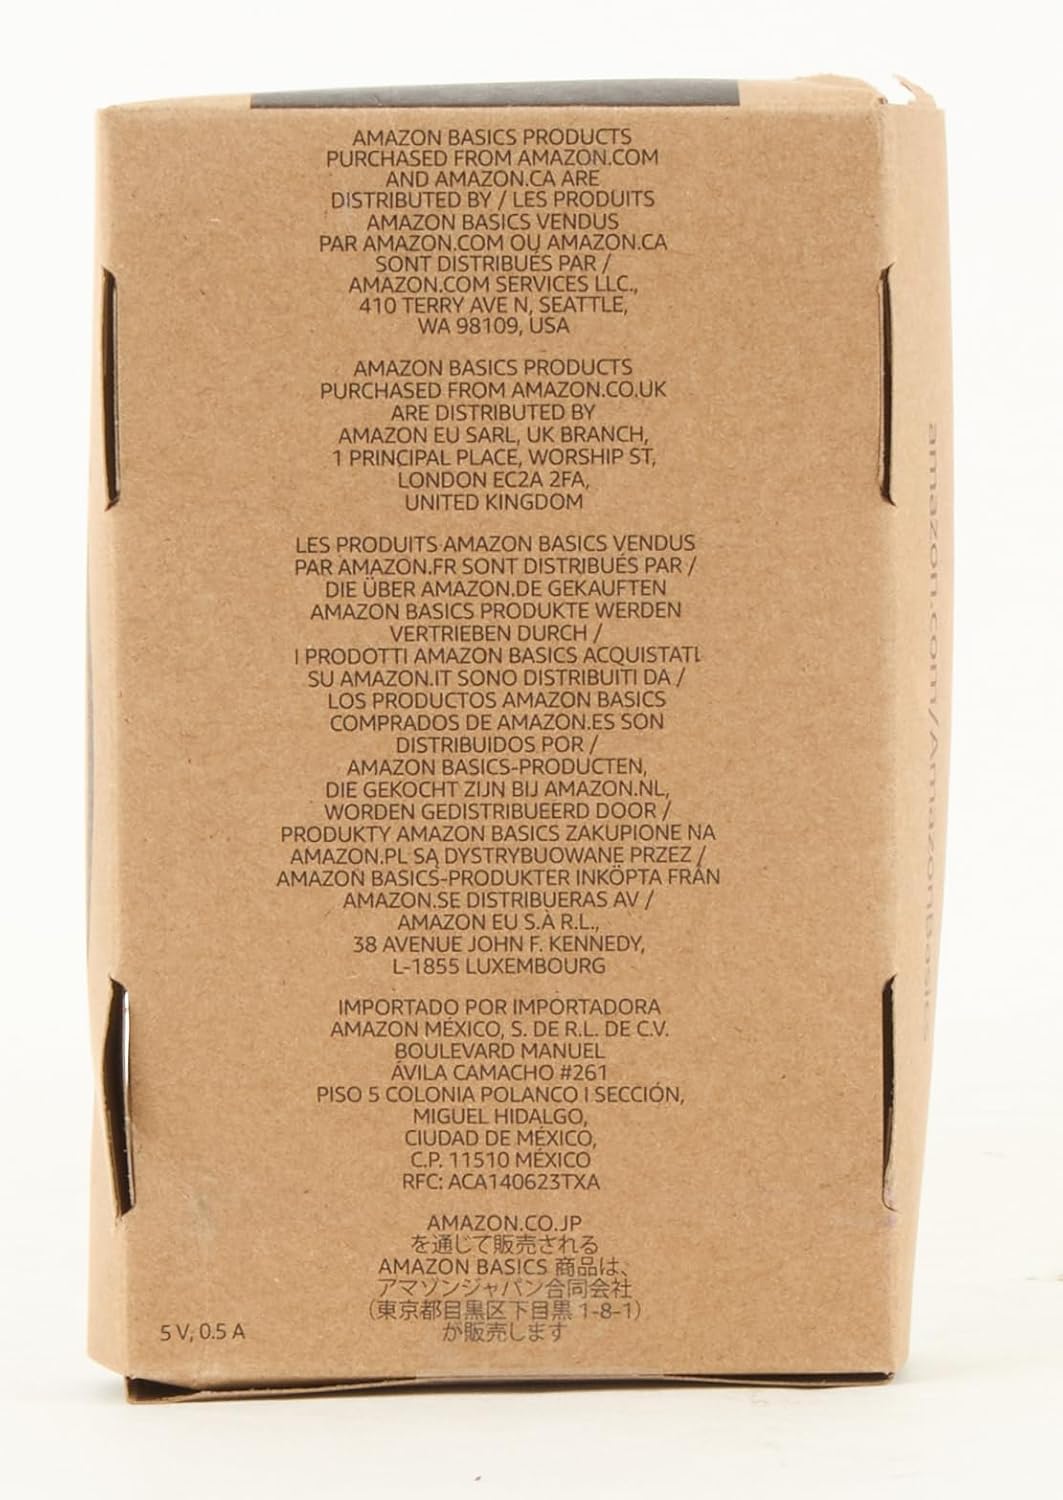 AMAZON BASICS PRODUCTS
PURCHASED FROM AMAZON.COM
AND AMAZON.CA ARE
DISTRIBUTED BY / LES PRODUITS
AMAZON BASICS VENDUS
PAR AMAZON.COM OU AMAZON.CA
SONT DISTRIBUÉS PAR /
AMAZON.COM SERVICES LLC.,
410 TERRY AVE N, SEATTLE,
WA 98109, USA
AMAZON BASICS PRODUCTS
PURCHASED FROM AMAZON.CO.UK
ARE DISTRIBUTED BY
AMAZON EU SARL, UK BRANCH,
1 PRINCIPAL PLACE, WORSHIP ST,
LONDON EC2A 2FA,
UNITED KINGDOM
LES PRODUITS AMAZON BASICS VENDUS
PAR AMAZON.FR SONT DISTRIBUÉS PAR /
DIE ÜBER AMAZON.DE GEKAUFTEN
AMAZON BASICS PRODUKTE WERDEN
VERTRIEBEN DURCH /
I PRODOTTI AMAZON BASICS ACQUISTATI
SU AMAZON.IT SONO DISTRIBUITI DA /
LOS PRODUCTOS AMAZON BASICS
COMPRADOS DE AMAZON.ES SON
DISTRIBUIDOS POR /
AMAZON BASICS-PRODUCTEN,
DIE GEKOCHT ZIJN BIJ AMAZON.NL,
WORDEN GEDISTRIBUEERD DOOR /
PRODUKTY AMAZON BASICS ZAKUPIONE NA
AMAZON.PL SĄ DYSTRYBUOWANE PRZEZ /
AMAZON BASICS-PRODUKTER INKÖPTA FRÅN
AMAZON.SE DISTRIBUERAS AV /
AMAZON EU S.À R.L.,
38 AVENUE JOHN F. KENNEDY,
L-1855 LUXEMBOURG
IMPORTADO POR IMPORTADORA
AMAZON MÉXICO, S. DE R.L. DE C.V.
BOULEVARD MANUEL
ÁVILA CAMACHO #261
PISO 5 COLONIA POLANCO I SECCIÓN,
MIGUEL HIDALGO,
CIUDAD DE MÉXICO,
C.P. 11510 MÉXICO
RFC: ACA140623TXA
AMAZON.CO.JP
を通じて販売される
AMAZON BASICS 商品は、
アマゾンジャパン合同会社
（東京都目黒区下目黒 1-8-1）
が販売します
5 V, 0.5 A
amazon.com/AmazonBasics